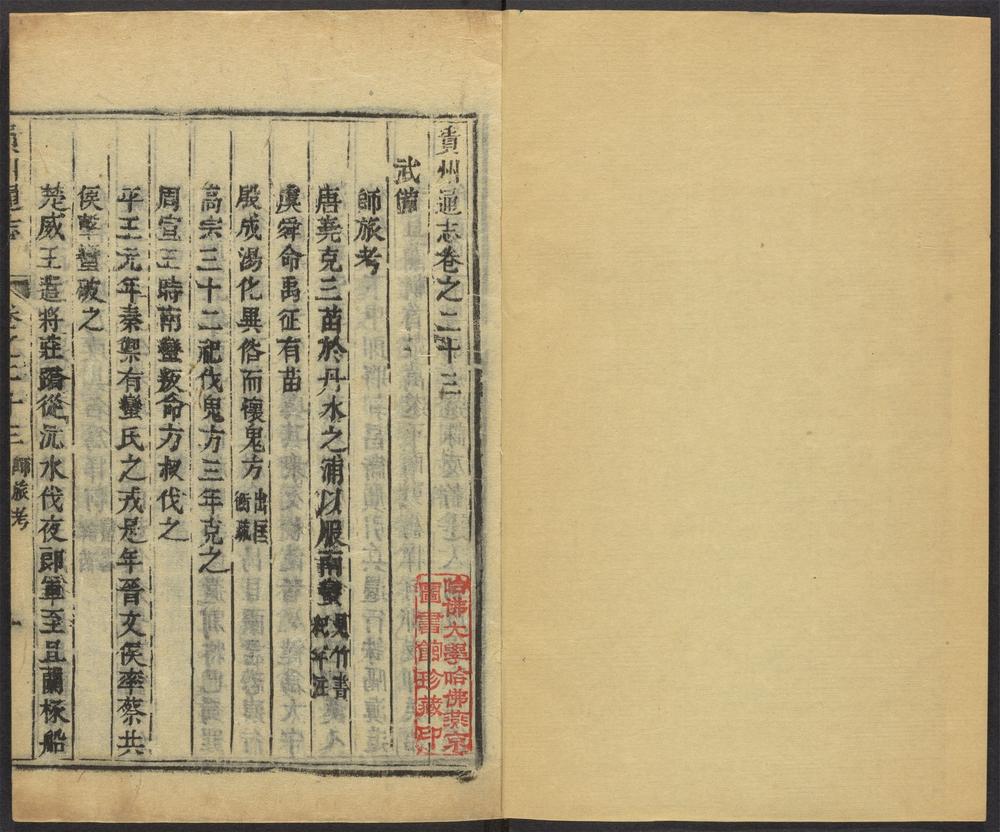 貴州通志卷之二十三
武備
師旅考
唐堯克三苗於丹水之浦以服南蠻見竹書紀年注
虞舜命禹征有苗
殷成湯化異俗而懷鬼方出匡衡疏
高宗三十二祀伐鬼方三年克之
周宣王時南蠻叛命方叔伐之
平王元年秦禦有蠻氏之戎是年晉文侯率蔡共
侯擊蠻破之
楚威王遣將莊蹻從沅水伐夜郎軍至且蘭椓船
貴州通志
卷之二十三
師旅考
一
哈佛大學哈佛燕京
圖書館珍藏印